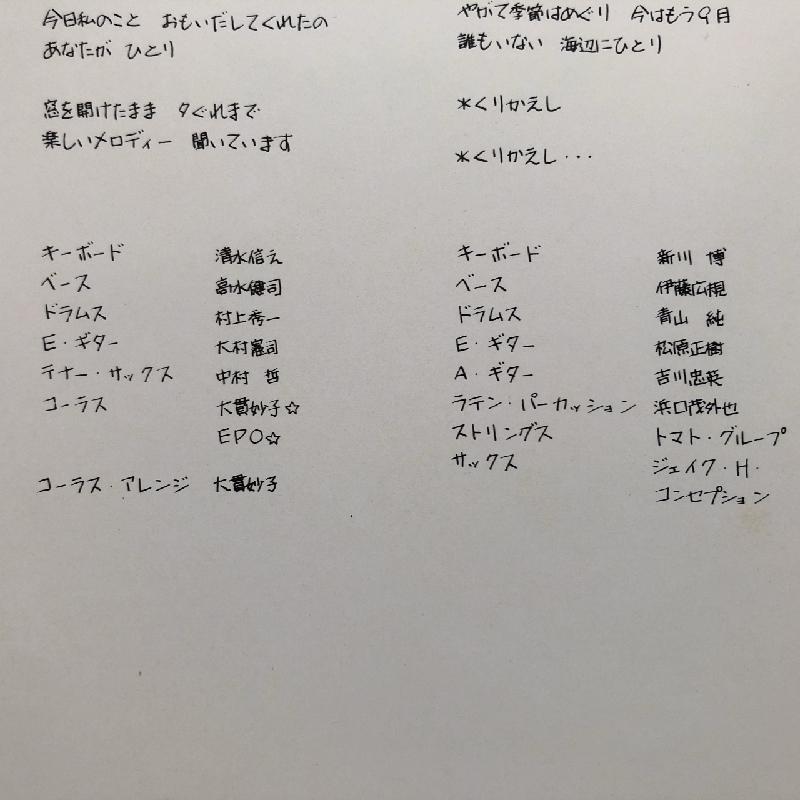 今日私のこと おもいだしてくれたの
あなたが ひとり
窓を開けたまま 夕ぐれまで
楽しいメロディー 聞いています
キーボード 清水信之
ベース 高水健司
ドラムス 村上秀一
E・ギター 大村憲司
テナー・サックス 中村 哲
コーラス 大貫妙子☆
EPO☆
コーラス・アレンジ 大貫妙子
やがて季節はめぐり 今はもう9月
誰もいない 海辺にひとり
*くりかえし
*くりかえし・・・
キーボード 新川 博
ベース 伊藤広規
ドラムス 青山 純
E・ギター 松原正樹
A・ギター 吉川忠英
ラテン・パーカッション 浜口茂外也
ストリングス トマト・グループ
サックス ジェイク・H・
コンセプション